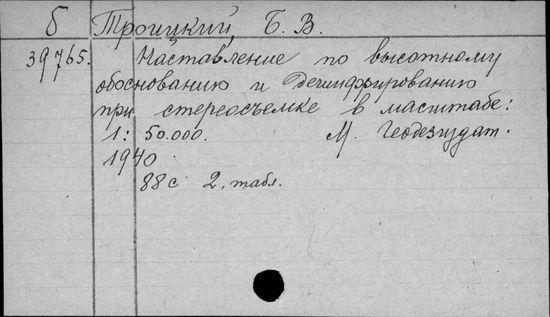 Б Троицкий, Б. В.
39765. Наставление по высотному
обоснованию и дешифрированию
при стереосъемке в масштабе:
1: 50.000. М. Геодезиздат.
1940
88 с 2. табл.